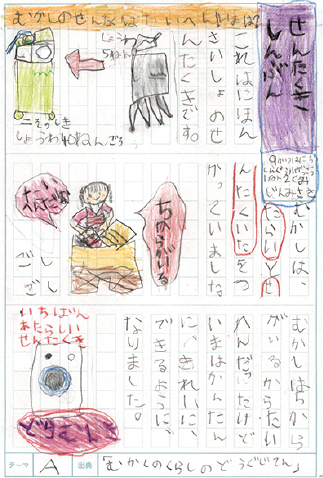 せんたくき
しんぶん
これはにほん
さいしょのせ
んたくきです。
しょうわ
5ねん
二そうしき
しょうわ40ねんごろ
むかしは、
たらいとせ
んたくいたをつ
かっていました。
ちからがいる
ごしごし
むかしはちから
がいるからたい
へんだったけど
いまはかんたん
に、きれいに、
できるように、
なりました。
いちばん
あたらしい
せんたくき
どらむしき
テーマ A 出典 「むかしのくらしのどうぐじてん」